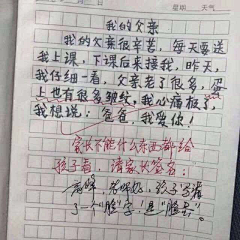 星期 天气
我的父亲
我的父亲很辛苦，每天要送
我上课，下课后来接我，昨天，
我仔细一看，父亲老了很多，
上也有很多皱纹，我心痛极了，
我想说：爸爸，我爱你！
家长不能什么东西都给
孩子看，请家长签名：
老师好，孩子写漏
了一个“脸”字！是“脸上”。